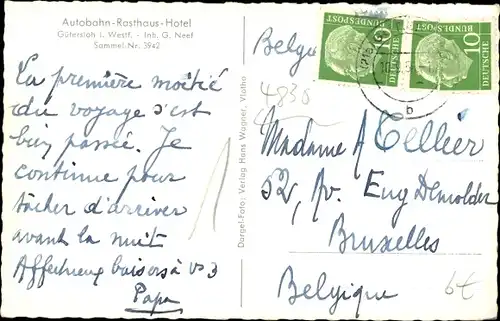 Autobahn-Rasthaus-Hotel
Gütersloh i. Westf. - Inh. G. Neef
Sammel-Nr. 3942
La première moitié
du voyage s'est
bien passée. Je
continue pour
tâcher d'arriver
avant la nuit
Affectueux baisers à vs 3
Papa
Dargel-Foto; Verlag Hans Wagner, Vlotho
Belgi
4838
DEUTSCHE
BUNDESPOST
10
DEUTSCHE
BUNDESPOST
10
b
Madame A Tellier
52, Av. Eug Demolder
Bruxelles
Belgique
6t